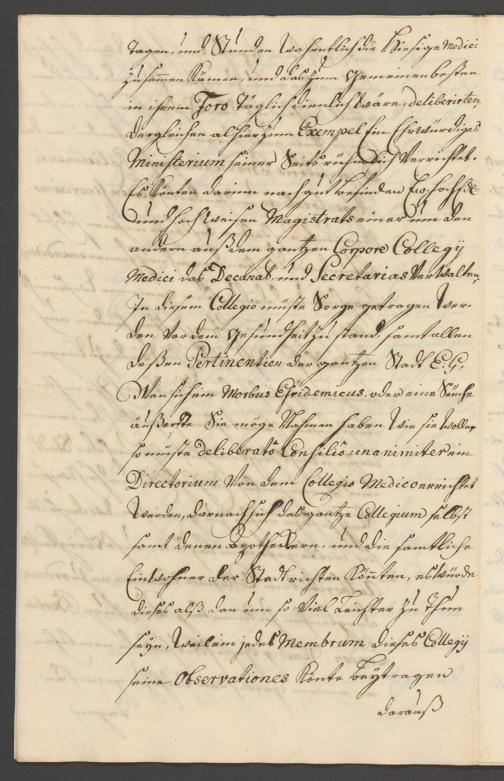 Tagen, und Stunden wohentlich die Hiesige Medici
zusammen kämen, und das zum gemeinen besten
in ihrem Foro Täglich dienlich wäre, deliberirten
dergleichen alhier zum Exempel Ein Ehrwürdiges
Ministerium seiner Seits rühmlich Verrichtet.
Es könten darinn nach gut befinden
und Hochweisen Magistrats einer um den
andern auß dem gantzen Corpore Collegÿ
Medici das Decanat, und Secretariat Verwalten,
In diesem Collegio müste Sorge getragen wer-
den Vor dem gesundheit zustand, samt allen
deßen Pertinentien der gantzen Stadt E: G:
Wan sich ein Morbus Epidemicus, oder eine Seüche
äußerte Sie möge Nahmen haben wie sie wolle,
so müste deliberato Consilio unanimiter ein
Directorium Von dem Collegio Medico errichtet
werden, darnach sich das gantze Collegium selbst
samt denen Apotheckern, und die samtliche
Einwohner der Stadt richten könten, es würde
dieses alß dan um so viel Leichter zu Thun
seyn, weilen jedes Membrum dieses Collegÿ
seine Observationes könte beÿtragen
darauß